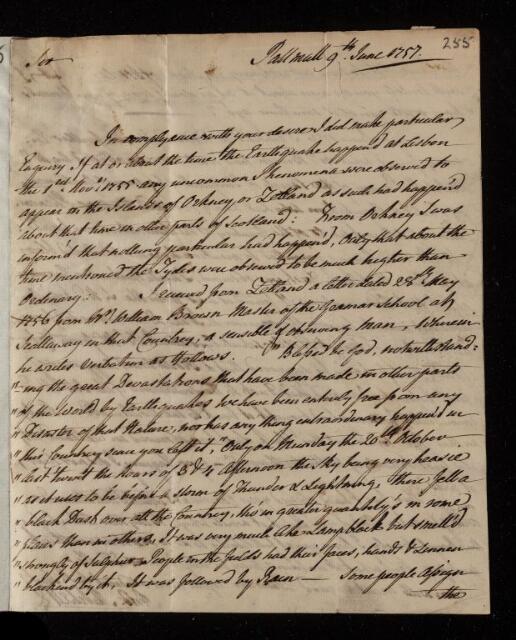 255
Sir Pall mall 9th June 1757.
In complyance with your desire I did make particular
Enquiry, If at or about the time the Earthquake happend at Lisbon
the 1st Novr 1755 any uncommon Phenomena were observed to
appear in the Islands of Orkney or Zetland as such had happen'd
about that time in other parts of Scotland: From Orkney I was
inform'd that nothing particular had happen'd, Only that about the
time mentioned the Tydes were observed to be much higher than
Ordinary: I received from Zetland a letter dated 28th May
1756 from Mr William Brown Master of the Gramar School at
Scalloway in that Countrey, a sensible & observing man, wherein
he writes verbatim as follows. Blessed be God, notwithstand=
"ing the great Devastations that have been made in other parts
"of the world by Earthquakes We have been entirely free from any
"Disaster of that Nature, nor has any thing extraordinary happen'd in
"this Countrey since you left it, Only on Munday the 20th October
"last 'twixt the hours of 3 & 4 Afternoon the Sky being very hazie
"as it uses to be before a storm of Thunder & Lightning, there fell a
"black Dust over all the Countrey, tho in greater quantity's in some
"places than in others, It was very much like Lampblack but smell'd
"strongly of Sulphur. People in the fields had their faces, hands & Linnen
"blackend by it. It was followed by Rain — Some people Assign
the